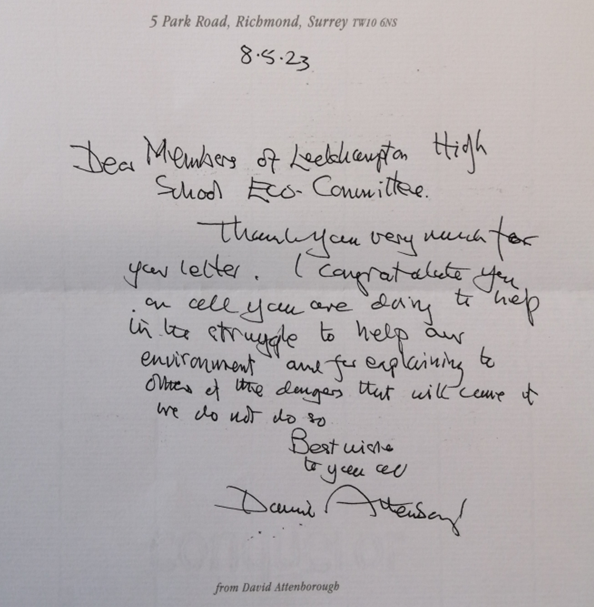 5 Park Road, Richmond, Surrey TW10 6NS
8.5.23
Dear Members of Leckhampton High
School Eco-Committee.
Thank you very much for
your letter. I congratulate you
on all you are doing to help
in the struggle to help our
environment and for explaining to
others of the dangers that will come if
we do not do so
Best wishes
to you all
David Attenborough
from David Attenborough